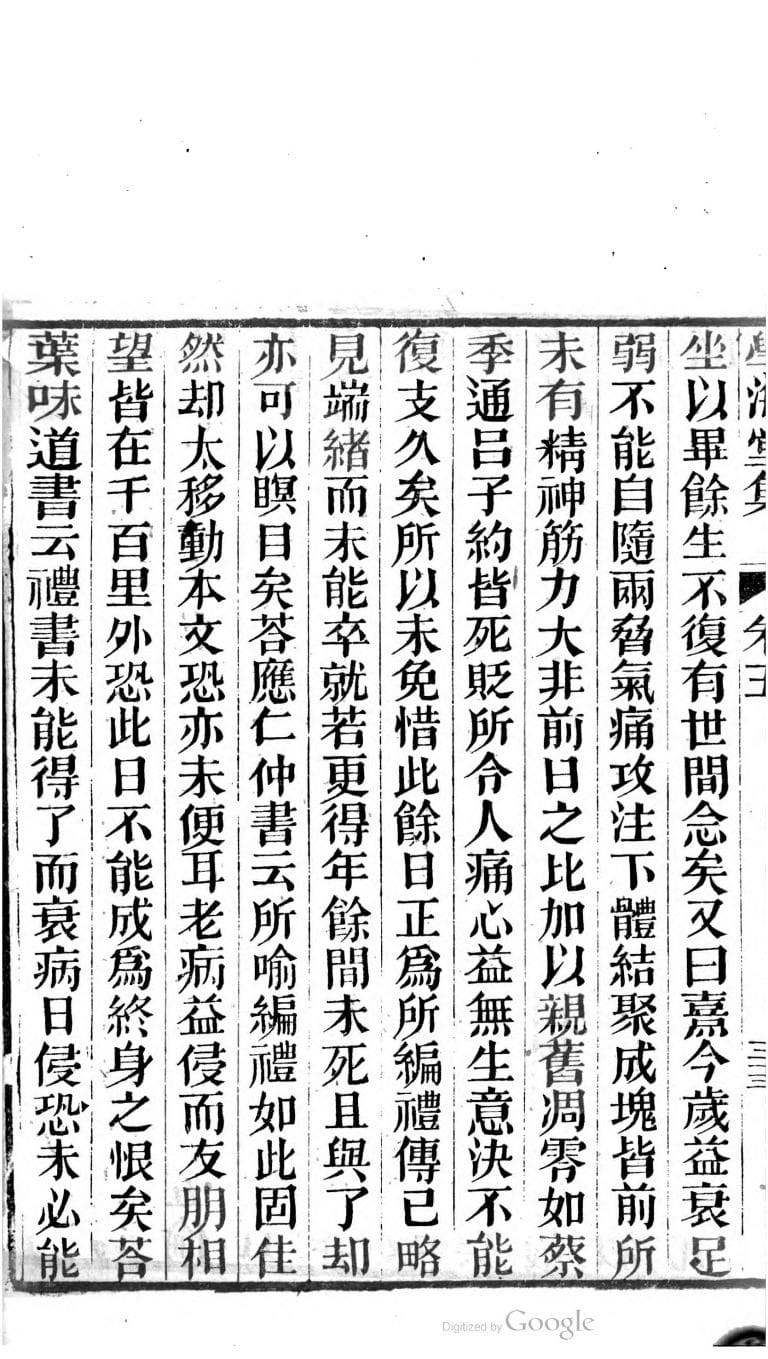 學海堂集 卷五 三三
坐以畢餘生不復有世間念矣又曰熹今歲益衰足
弱不能自隨兩脅氣痛攻注下體結聚成塊皆前所
未有精神筋力大非前日之比加以親舊凋零如蔡
季通呂子約皆死貶所令人痛心益無生意決不能
復支久矣所以未免惜此餘日正爲所編禮傳已略
見端緒而未能卒就若更得年餘間未死且與了却
亦可以瞑目矣荅應仁仲書云所喻編禮如此固佳
然却太移動本文恐亦未便耳老病益侵而友朋相
望皆在千百里外恐此日不能成爲終身之恨矣荅
葉味道書云禮書未能得了而衰病日侵恐未必能
Digitized by Google